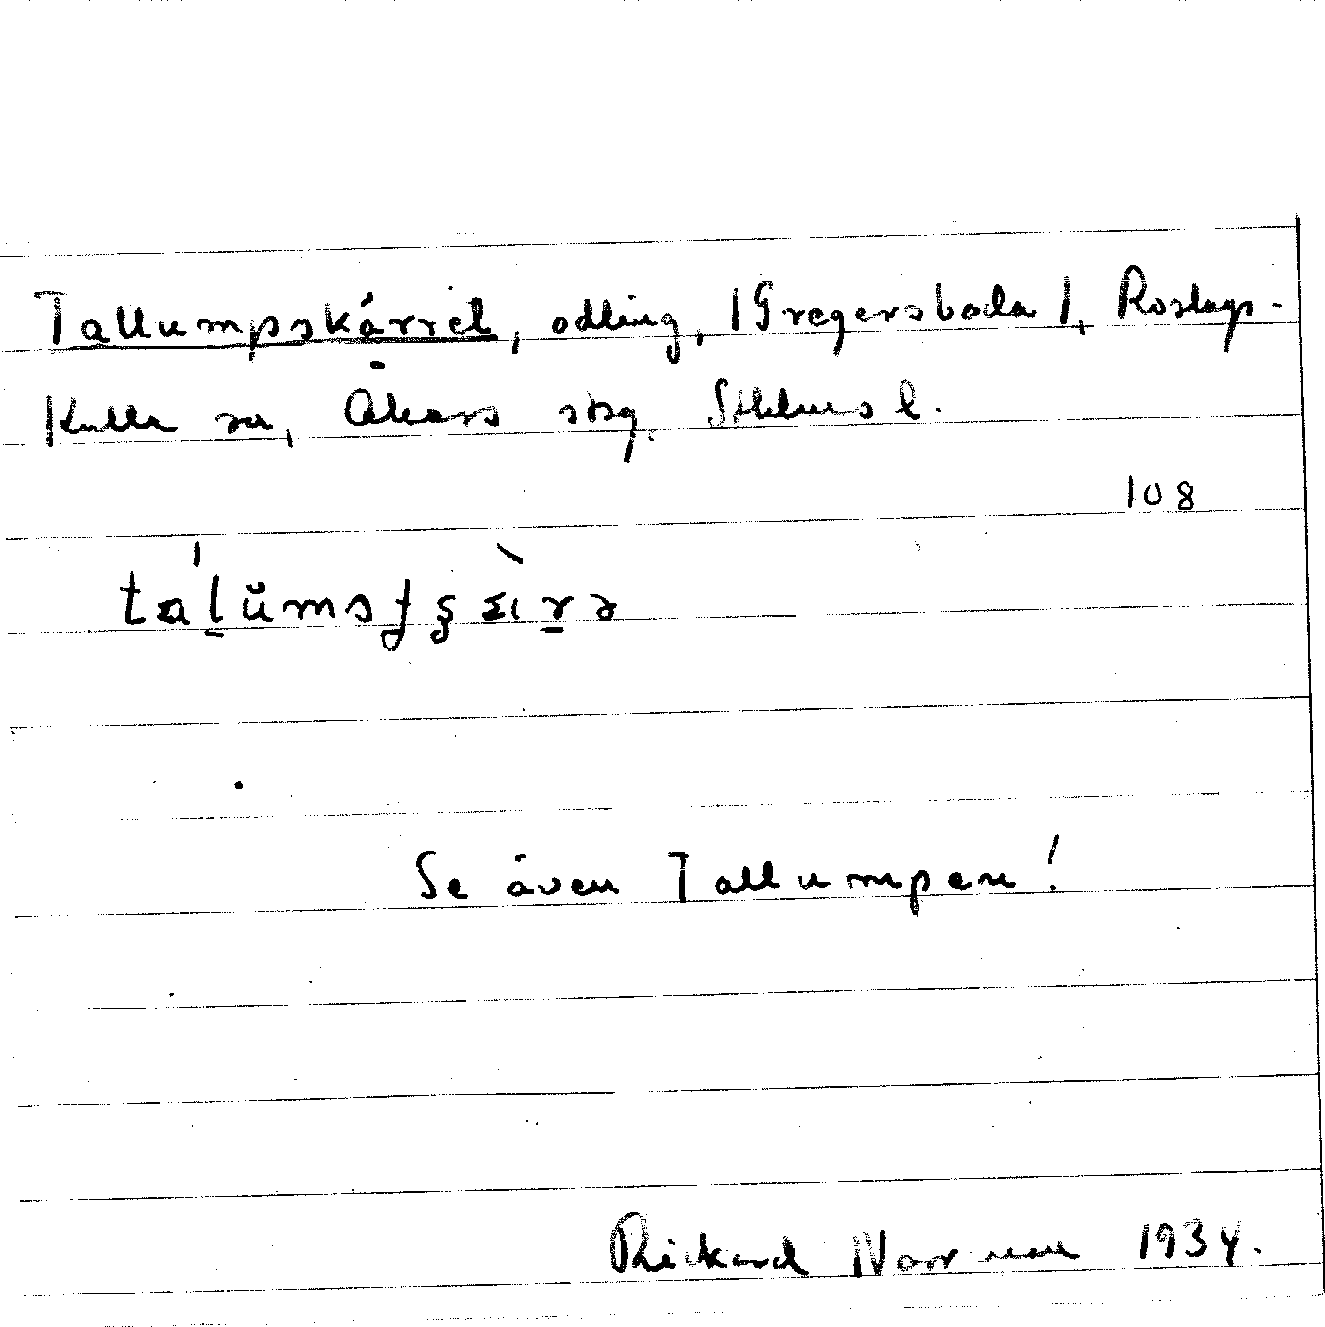 Tallumpskärret, odling, /Gregersboda/, Roslags-
Kulla sn, Åkers skg. Sthlms l.
108
Se även Tallumpen!
Rickard Norrman 1934.